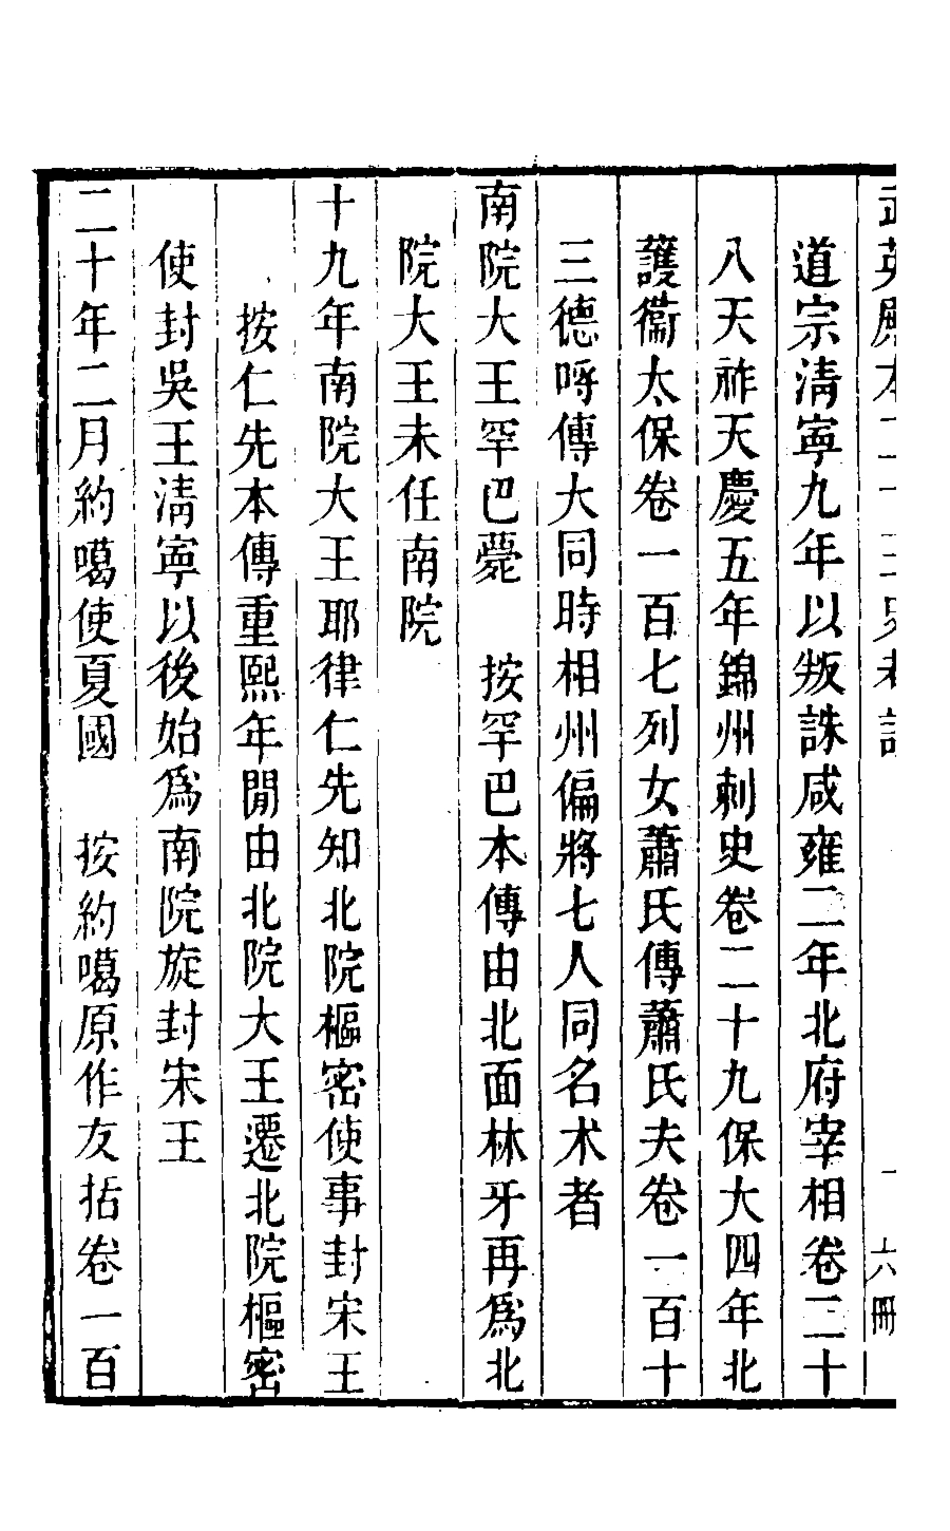 武英殿本二十三史考證
六冊
道宗清寧九年以叛誅咸雍二年北府宰相卷二十
八天祚天慶五年錦州刺史卷二十九保大四年北
護衞太保卷一百七列女蕭氏傳蕭氏夫卷一百十
三德哷傳大同時相州偏將七人同名术者
南院大王罕巴薨　按罕巴本傳由北面林牙再爲北
院大王未任南院
十九年南院大王耶律仁先知北院樞密使事封宋王
按仁先本傳重熙年閒由北院大王遷北院樞密
使封吳王清寧以後始爲南院旋封宋王
二十年二月約噶使夏國　按約噶原作友括卷一百